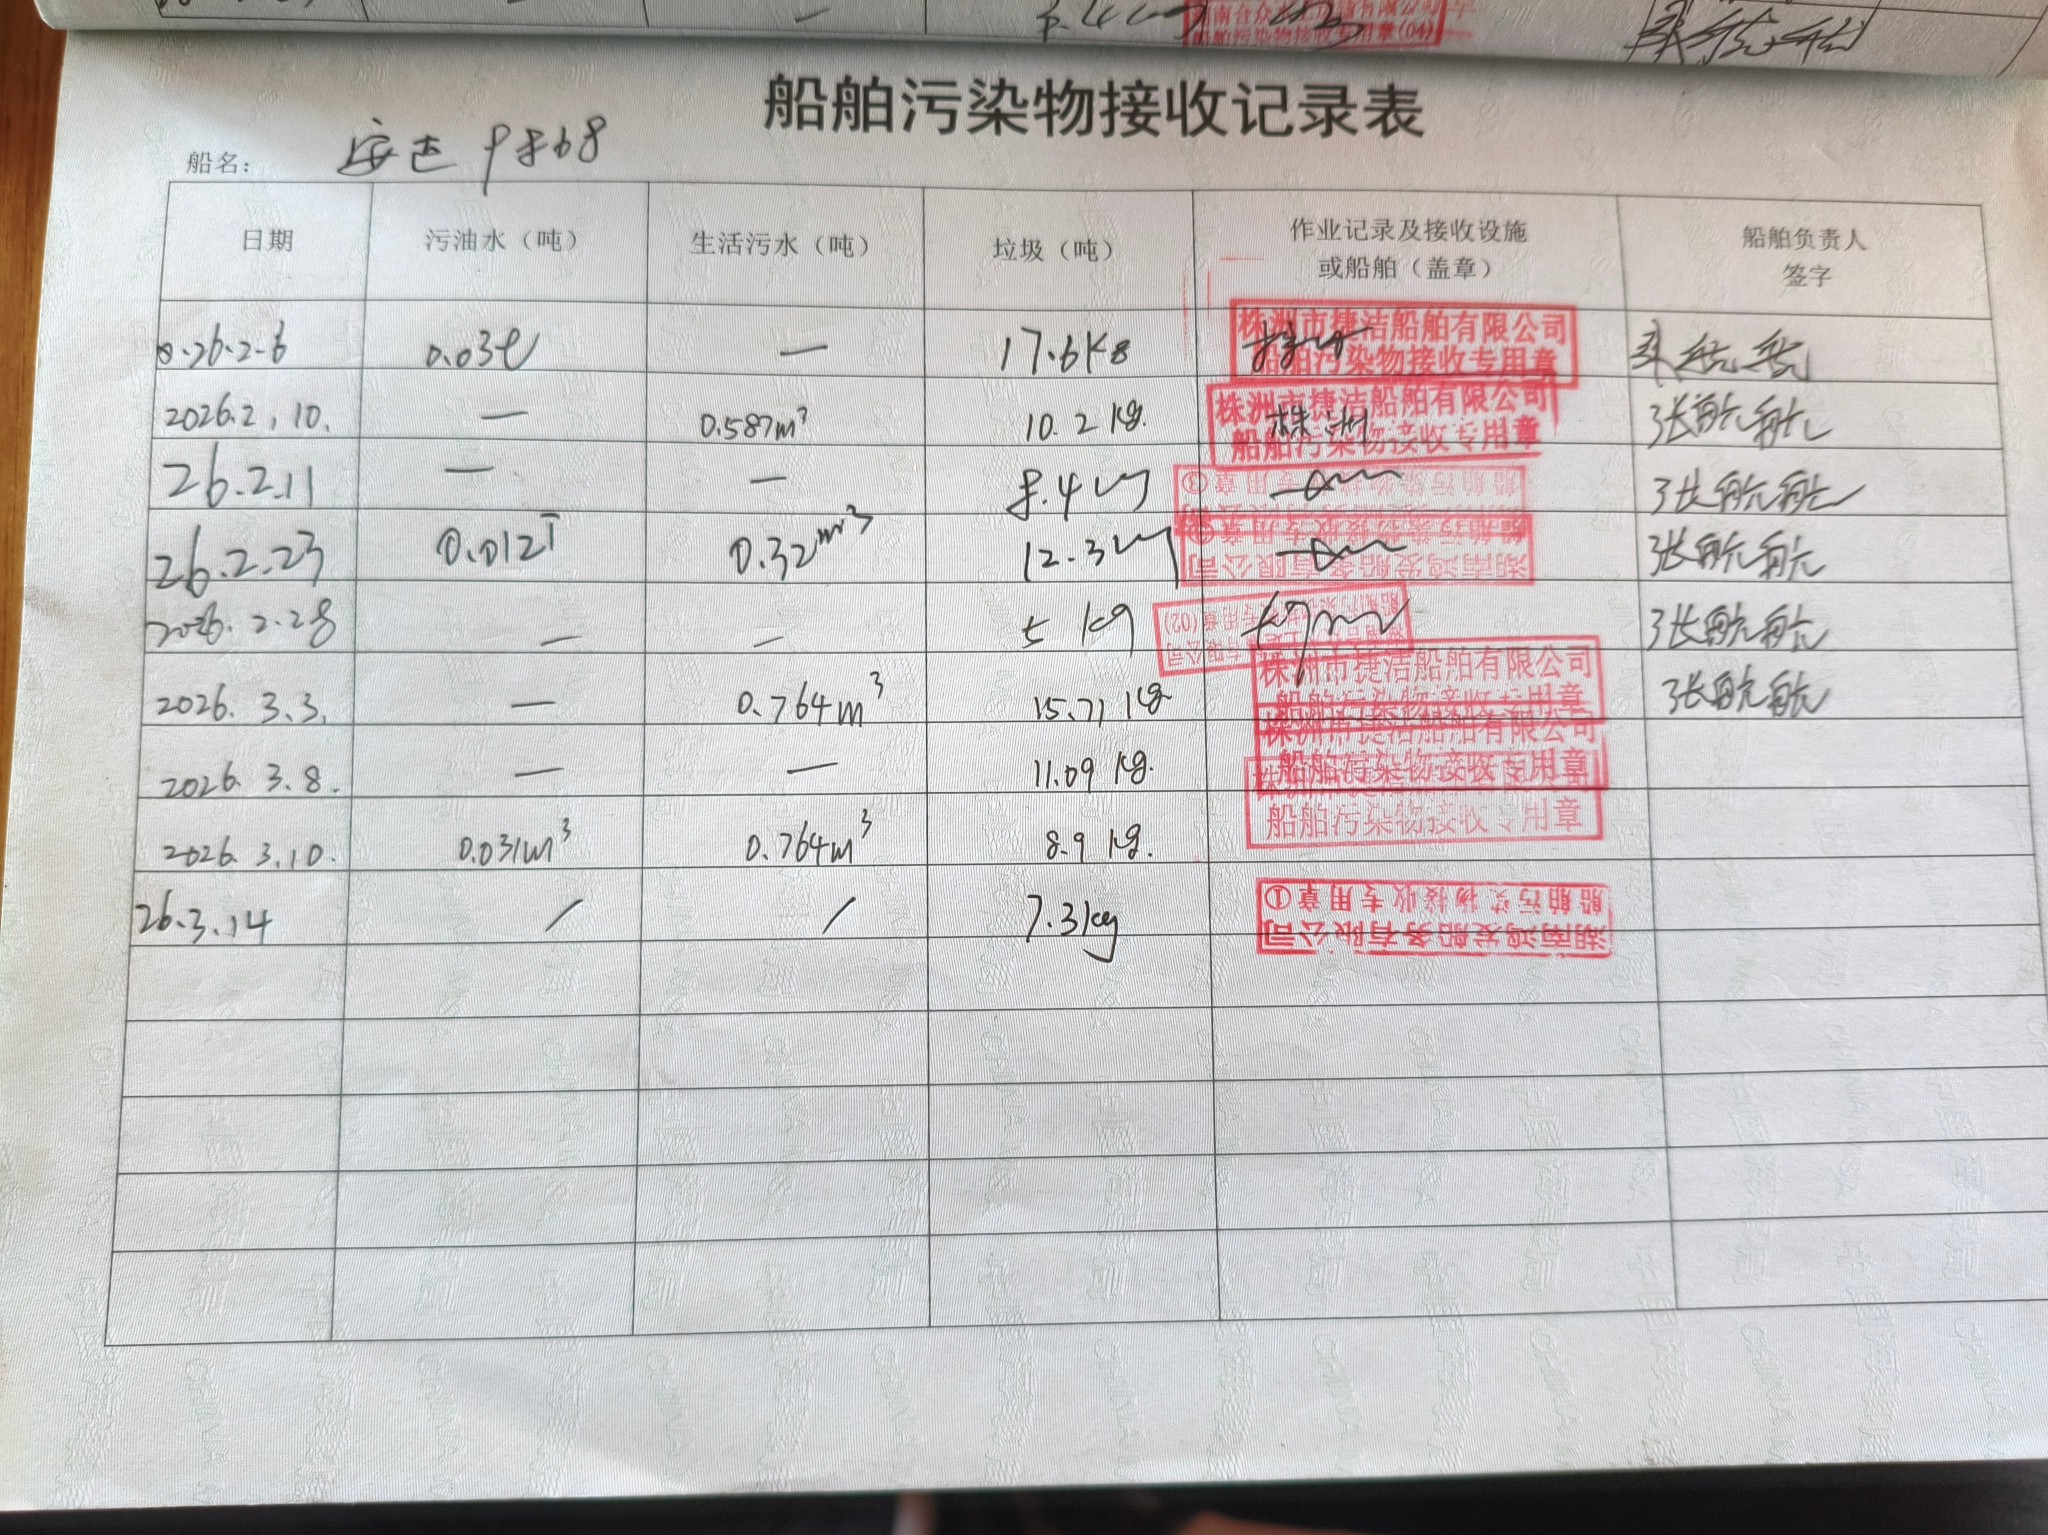 船舶污染物接收专用章(04)
船舶污染物接收记录表
船名：
日期 污油水（吨） 生活污水（吨） 垃圾（吨） 作业记录及接收设施或船舶（盖章） 船舶负责人签字
26.2.6 0.03 — 17.6kg 株洲市捷洁船舶有限公司 船舶污染物接收专用章
2026.2.10. — 0.587m³ 10.2kg. 株洲 株洲市捷洁船舶有限公司 船舶污染物接收专用章 张航航
26.2.11 — — 8.4 船舶污染物接收专用章③ 张航航
26.2.23 0.012T 0.32m³ 12.3 湖南鸿发船务有限公司 张航航
2026.2.28 — — 5kg 专用章(02) 张航航
2026.3.3. — 0.764m³ 15.71kg 株洲市捷洁船舶有限公司 船舶污染物接收专用章 张航航
2026.3.8. — — 11.09kg. 株洲市捷洁船舶有限公司 船舶污染物接收专用章
2026.3.10. 0.031m³ 0.764m³ 8.9kg. 船舶污染物接收专用章
26.3.14 / / 7.3kg 湖南鸿发船务有限公司 船舶污染物接收专用章①